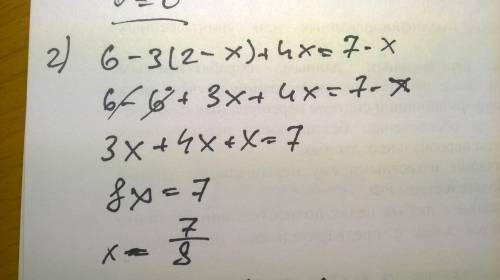 2) 6 - 3(2 - x) + 4x = 7 - x
6 - 6 + 3x + 4x = 7 - x
3x + 4x + x = 7
8x = 7
x = 7/8